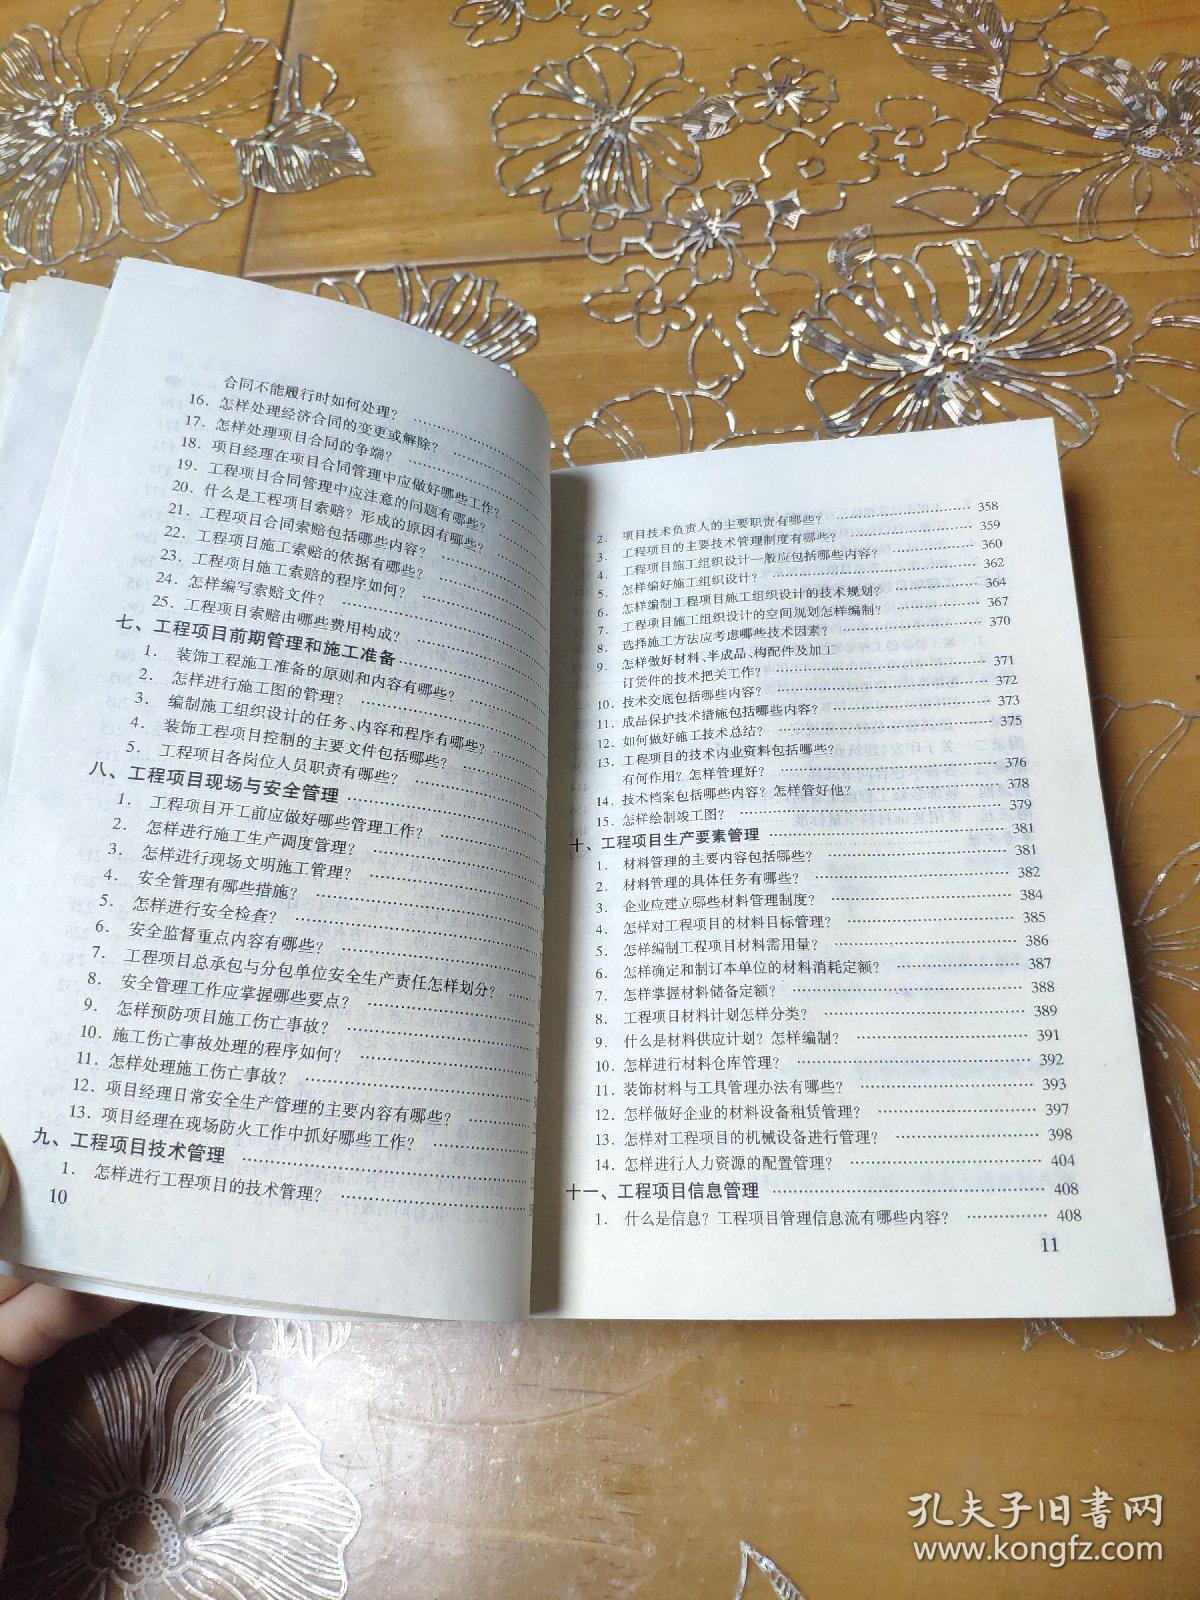 合同不能履行时如何处理？
16. 怎样处理经济合同的变更或解除？
17. 怎样处理项目合同的争端？
18. 项目经理在项目合同管理中应做好哪些工作？
19. 工程项目合同管理中应注意的问题有哪些？
20. 什么是工程项目索赔？形成的原因有哪些？
21. 工程项目合同索赔包括哪些内容？
22. 工程项目施工索赔的依据有哪些？
23. 工程项目施工索赔的程序如何？
24. 怎样编写索赔文件？
25. 工程项目索赔由哪些费用构成？
七、工程项目前期管理和施工准备
1. 装饰工程施工准备的原则和内容有哪些？
2. 怎样进行施工图的管理？
3. 编制施工组织设计的任务、内容和程序有哪些？
4. 装饰工程项目控制的主要文件包括哪些？
5. 工程项目各岗位人员职责有哪些？
八、工程项目现场与安全管理
1. 工程项目开工前应做好哪些管理工作？
2. 怎样进行施工生产调度管理？
3. 怎样进行现场文明施工管理？
4. 安全管理有哪些措施？
5. 怎样进行安全检查？
6. 安全监督重点内容有哪些？
7. 工程项目总承包与分包单位安全生产责任怎样划分？
8. 安全管理工作应掌握哪些要点？
9. 怎样预防项目施工伤亡事故？
10. 施工伤亡事故处理的程序如何？
11. 怎样处理施工伤亡事故？
12. 项目经理日常安全生产管理的主要内容有哪些？
13. 项目经理在现场防火工作中抓好哪些工作？
九、工程项目技术管理
1. 怎样进行工程项目的技术管理？
10
2. 项目技术负责人的主要职责有哪些？ 358
3. 工程项目的主要技术管理制度有哪些？ 359
4. 工程项目施工组织设计一般应包括哪些内容？ 360
5. 怎样编好施工组织设计？ 362
6. 怎样编制工程项目施工组织设计的技术规划？ 364
7. 工程项目施工组织设计的空间规划怎样编制？ 367
8. 选择施工方法应考虑哪些技术因素？ 370
9. 怎样做好材料、半成品、构配件及加工
订货件的技术把关工作？ 371
10. 技术交底包括哪些内容？ 372
11. 成品保护技术措施包括哪些内容？ 373
12. 如何做好施工技术总结？ 375
13. 工程项目的技术内业资料包括哪些？
有何作用？怎样管理好？ 376
14. 技术档案包括哪些内容？怎样管好他？ 378
15. 怎样绘制竣工图？ 379
十、工程项目生产要素管理 381
1. 材料管理的主要内容包括哪些？ 381
2. 材料管理的具体任务有哪些？ 382
3. 企业应建立哪些材料管理制度？ 384
4. 怎样对工程项目的材料目标管理？ 385
5. 怎样编制工程项目材料需用量？ 386
6. 怎样确定和制订本单位的材料消耗定额？ 387
7. 怎样掌握材料储备定额？ 388
8. 工程项目材料计划怎样分类？ 389
9. 什么是材料供应计划？怎样编制？ 391
10. 怎样进行材料仓库管理？ 392
11. 装饰材料与工具管理办法有哪些？ 393
12. 怎样做好企业的材料设备租赁管理？ 397
13. 怎样对工程项目的机械设备进行管理？ 398
14. 怎样进行人力资源的配置管理？ 404
十一、工程项目信息管理 408
1. 什么是信息？工程项目管理信息流有哪些内容？ 408
11
孔夫子旧书网
www.kongfz.com